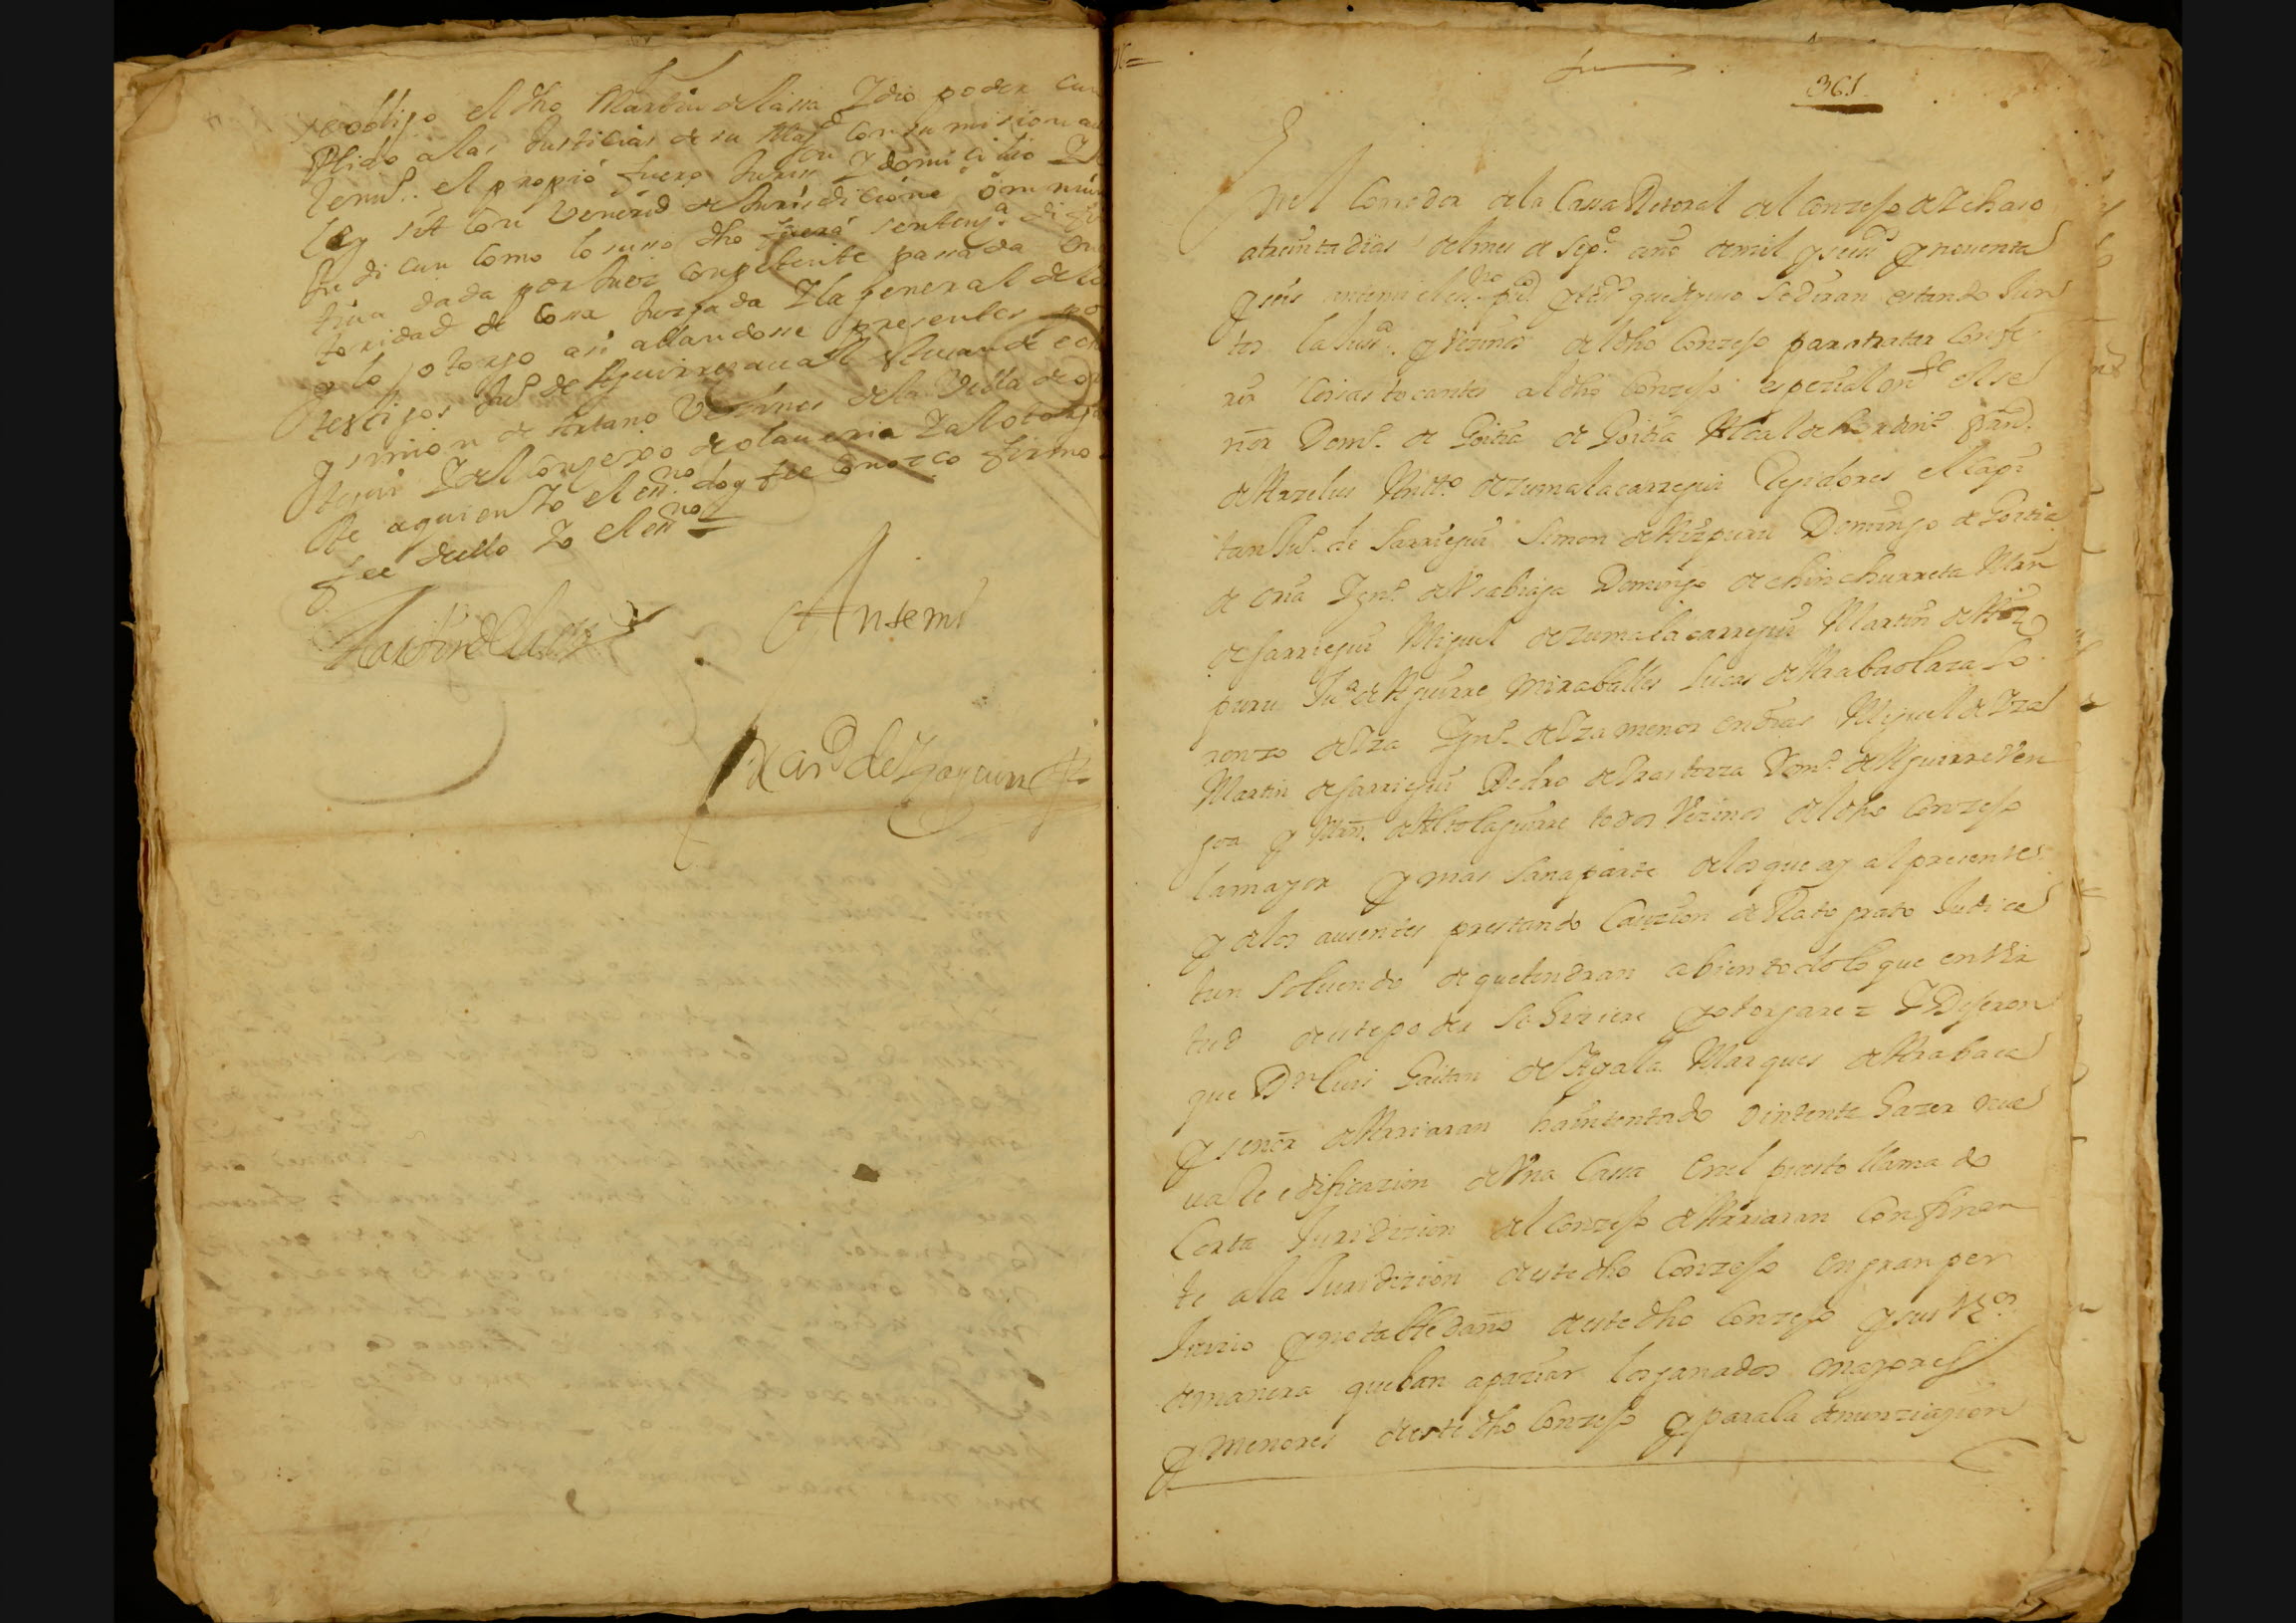 se obligo el dho Martin de Lassa Y dio poder cun
plido a las Justicias de su Magd con sumision a
Renuº el propio fuero Jurisn Y domicilio Y
ley sit con Venerid de Jurisdicione omnium
Judicun como lo suso dho fuera sentenª difi
tiva dada por Juez conpetente passada en
toridad de cossa Juzgada Y la general de
o lo otorgo asi allandosse presentes por
testigos Juº de Aguirrezaual
y simon de Artano Vezinos de la Villa de
Y del Conzexo de olauerria Y al otorgan
te aquien Yo el essno doy fee Conozco firmo
fee dello Yo el essno =
Martin de Lassa
Antemi
Ricardo de Ygarcurrea
361
En el Corredor de la Cassa Retoral del Conzejo de Ychaso
atreinta dias del mes de Sepe año de mil y seisº y nouenta
y seis antemi el essno y tesº que de yuso se diran estando Jun
tos la Jusª y Vezinos del dho Conzejo para tratar Confe
rir Cosas tocantes al dho Conzejo espezialmte el se
ñor Domº de Goitia de Goitia Alcalde hordinº frand
de Arzelus Antto de Zumalacarregui Regidores el Capi
tan Juº de Sarriegui Simon de Aizpuru Domingo de Goitia
de oria Ygnº de Vsabiaga Domingo de chinchurreta Mrn
de Sarriegui Miguel de Zumalacarregui Martin de Aiz
puru Juª de Aguirre miraballes Lucas de Arabaolaza Lo
renzo de Yza Ygnº de Yza menor en dias Miguel de Yza
Martin de Sarriegui Pedro de Yrastorza Domº de Aguirre Ven
goa y Mrn de Altolaguirre todos Vezinos del dho Conzejo
la mayor y mas sana parte de los que ay al presente
y de los ausentes prestando Cauzion de Rato grato Judica
tun soluendo de que tendran a bien todo lo que en Vir
tud de este poder se hiziere y otorgare = Y Dijeron
que Dn Luis Gaitan de Ayala Marques de Arabaca
y señor de Arriaran ha intentado o intenta hazer nue
ua Reedificazion de Vna Cassa en el puesto llamado
Corta Juridizion del Conzejo de Arriaran Confinan
te a la Juridizion de este dho Conzejo en gran per
Juizio y notable daño de este dho Conzejo y sus Vºs
de manera que ban apaziar los ganados mayores
y menores de este dho Conzejo y para la denunziazion